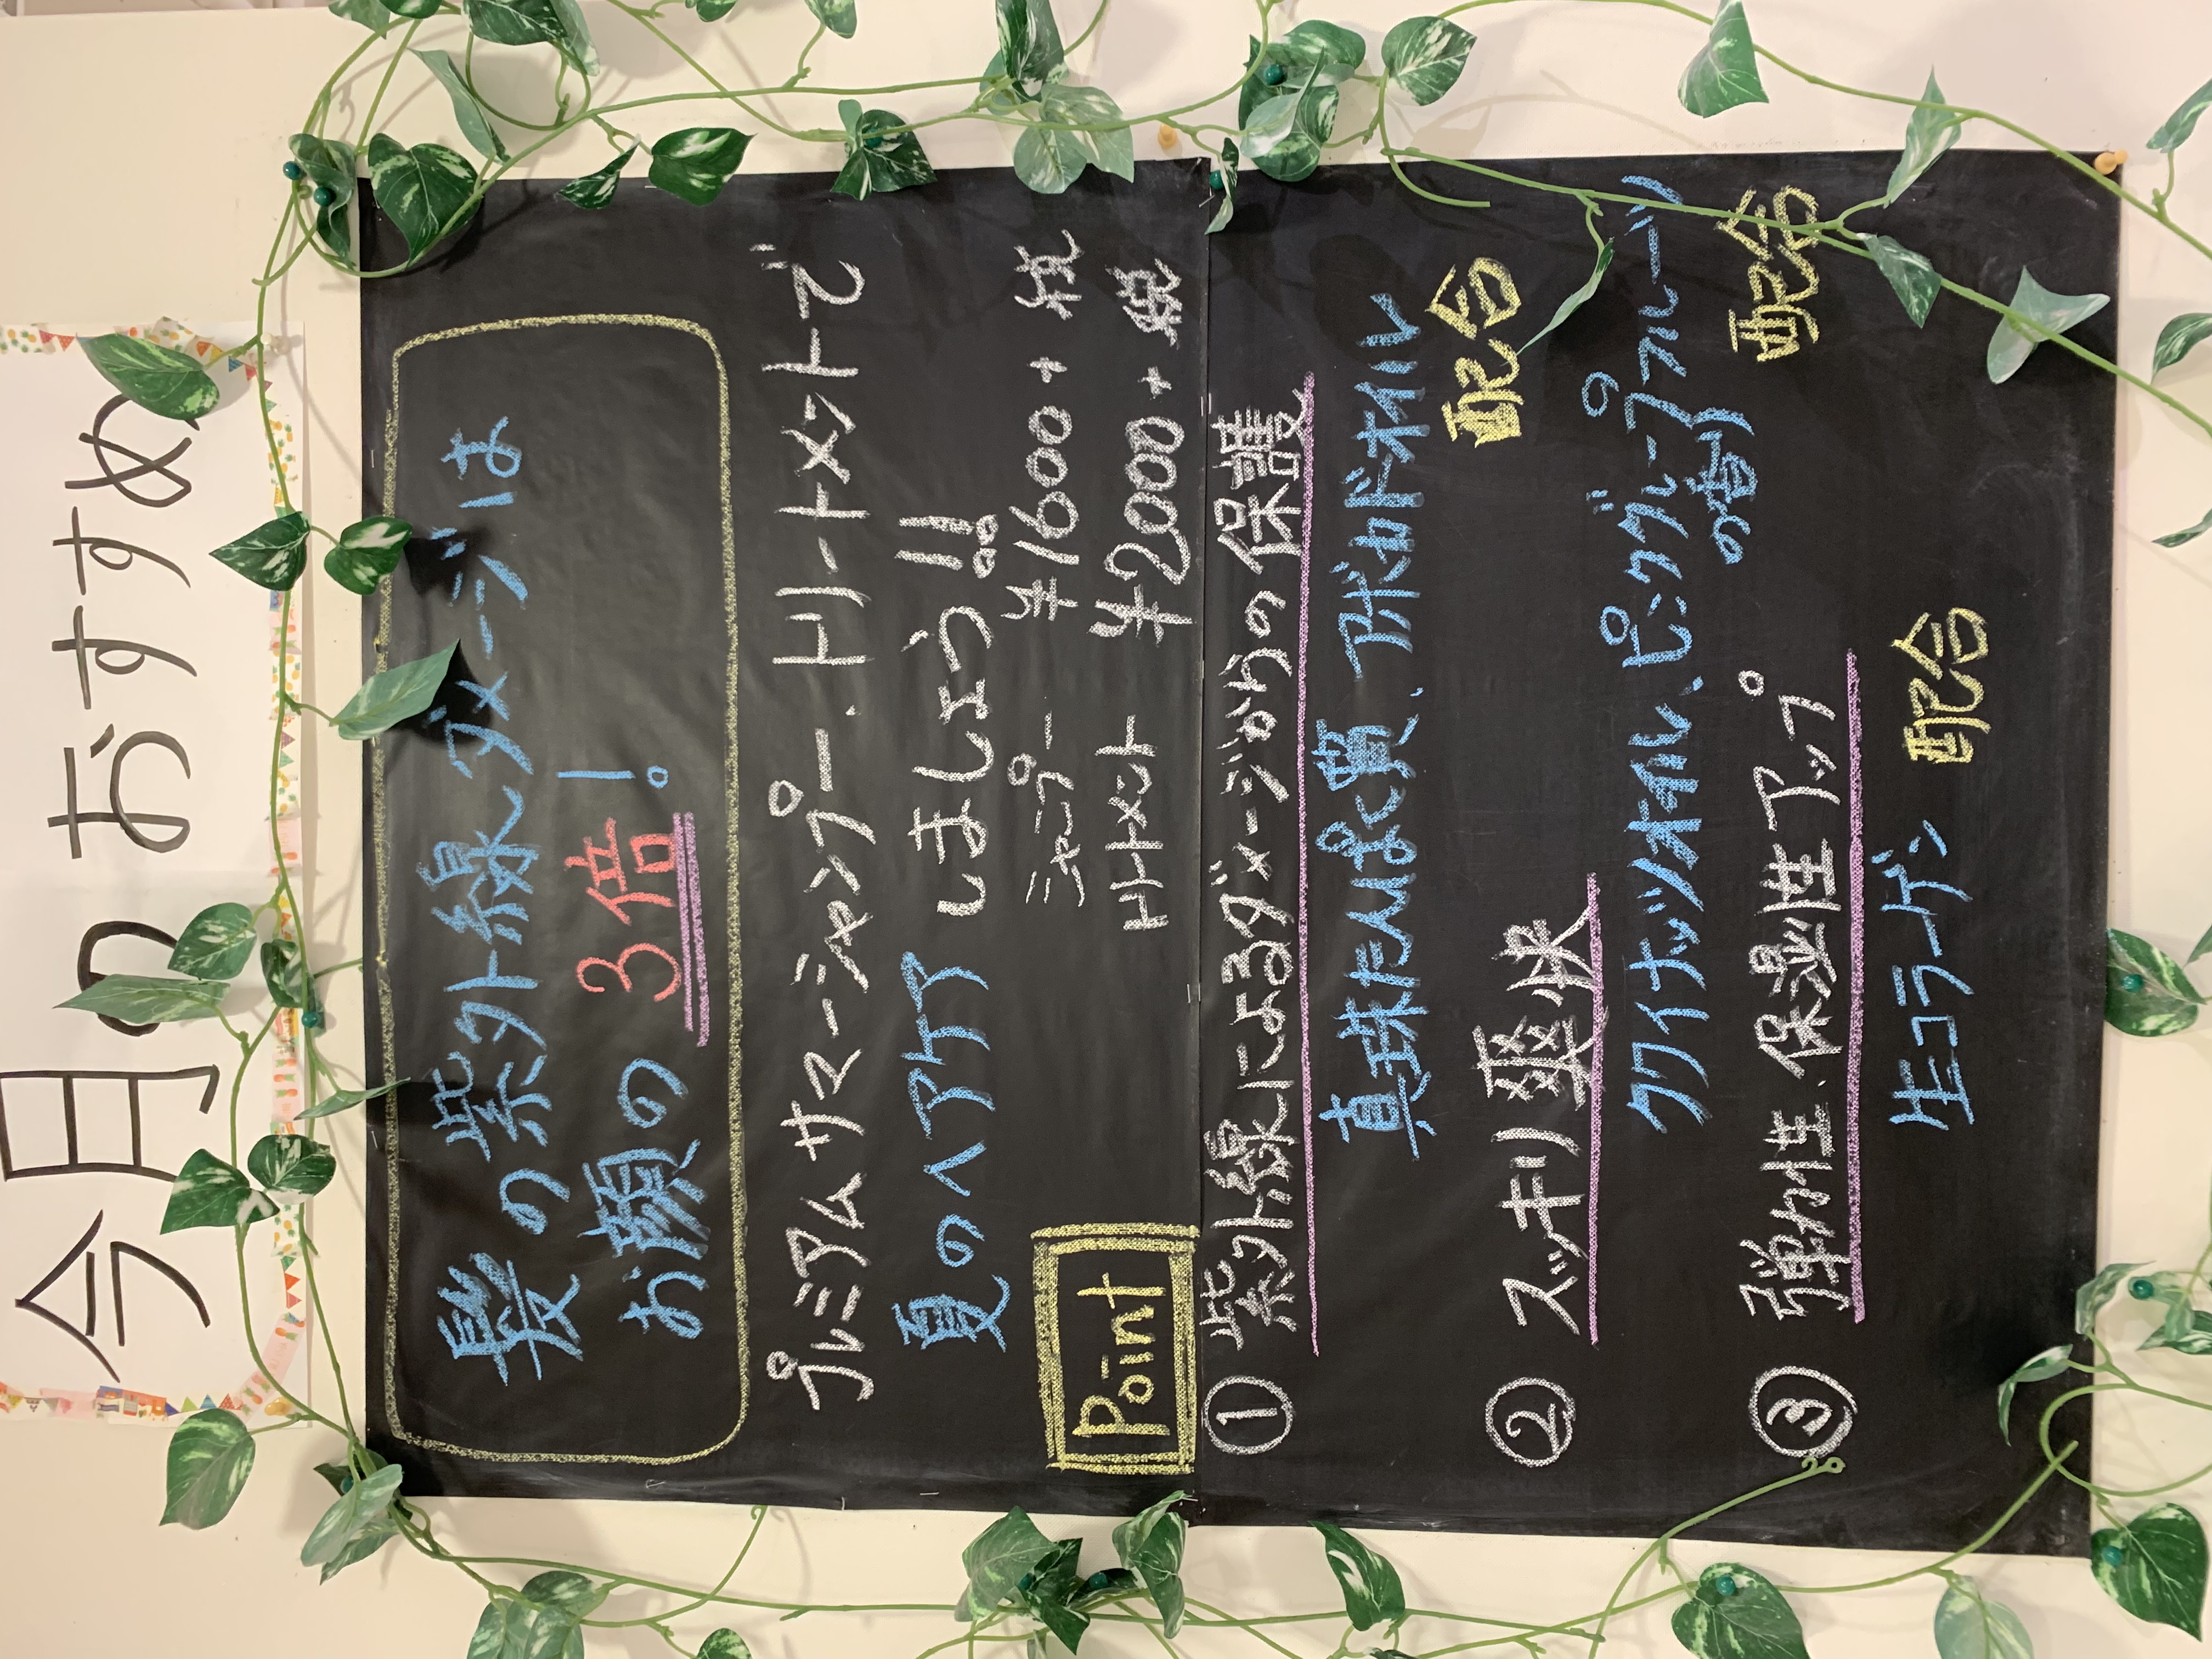 今月のおすすめ
髪の紫外線ダメージは
お顔の 3倍!
プレミアムサマーシャンプー、トリートメントで
夏のヘアケア しましょう!!
シャンプー ¥1600+税
トリートメント ¥2000+税
Point
① 紫外線によるダメージからの保護
真珠たんぱく質、アボカドオイル
配合
② スッキリ爽快
ククイナッツオイル、ピンクグレープフルーツ
の香り 配合
③ 弾力性、保湿性アップ
生コラーゲン 配合